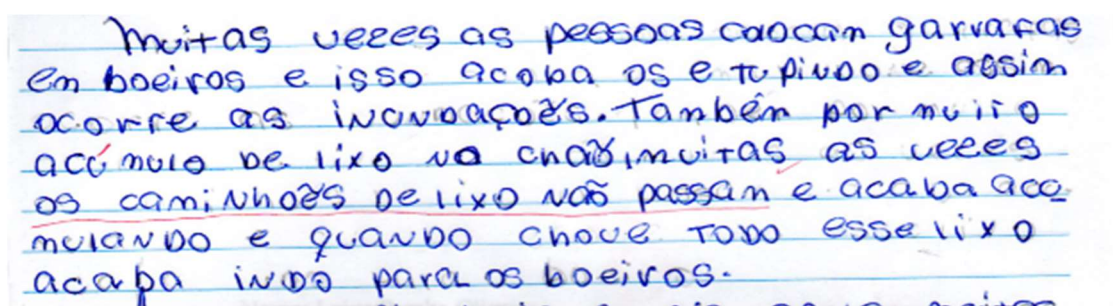 Muitas vezes as pessoas caocam garrafas
em boeiros e isso acoba os etupindo e assim
ocorre as inundações. Tambêm por muito
acúmulo de lixo no chão, muitas as vezes
os caminhões de lixo não passam e acaba acu
mulando e quando chove todo esse lixo
acaba indo para os boeiros.